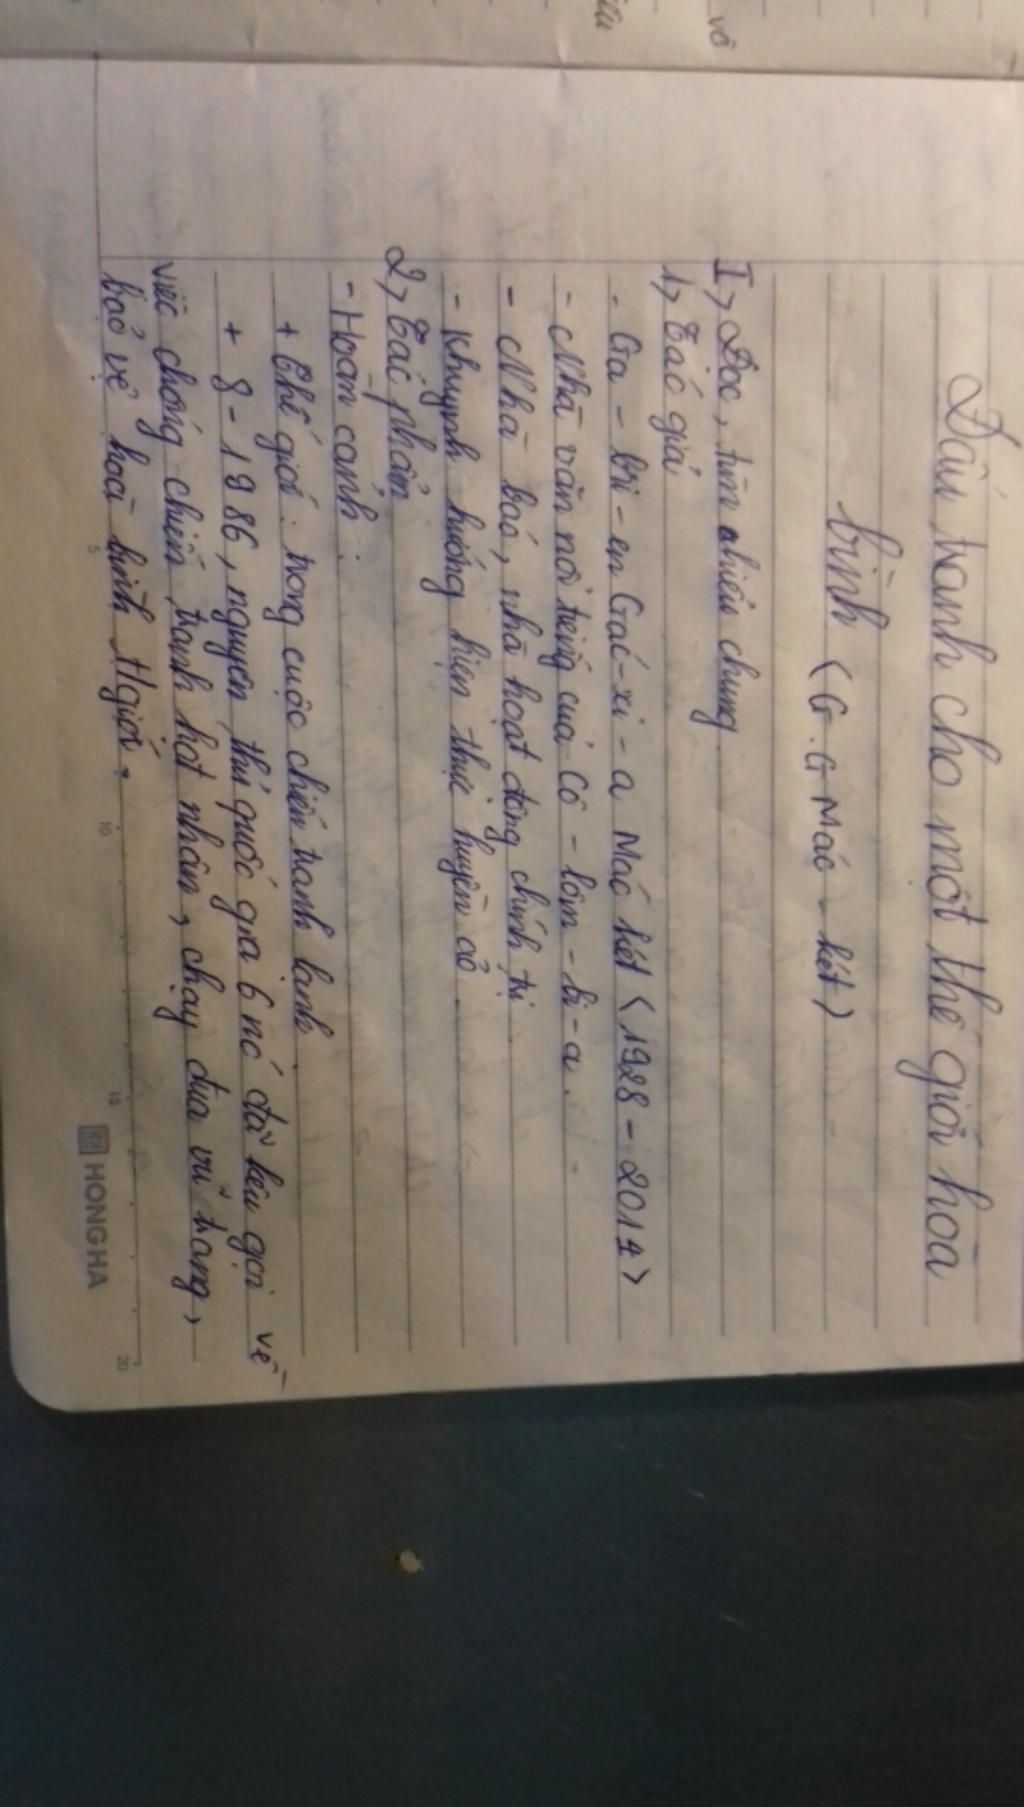 Đấu tranh cho một thế giới hoà
bình (G.G Mác-két)
I, Đọc, tìm hiểu chung
1, Tác giả
- Ga-bri-en Gác-xi-a Mác két (1928 - 2014)
- Nhà văn nổi tiếng của Cô-lôm-bi-a.
- Nhà báo, nhà hoạt động chính trị
- Khuynh hướng hiện thực huyền ảo.
2, Tác phẩm
- Hoàn cảnh:
+ Thế giới: trong cuộc chiến tranh lạnh.
+ 8-1986, nguyên thủ quốc gia 6 nc đã kêu gọi về
việc chống chiến tranh hạt nhân, chạy đua vũ trang,
bảo vệ hoà bình tgiới.
5 10 15 20
HONG HA
vô